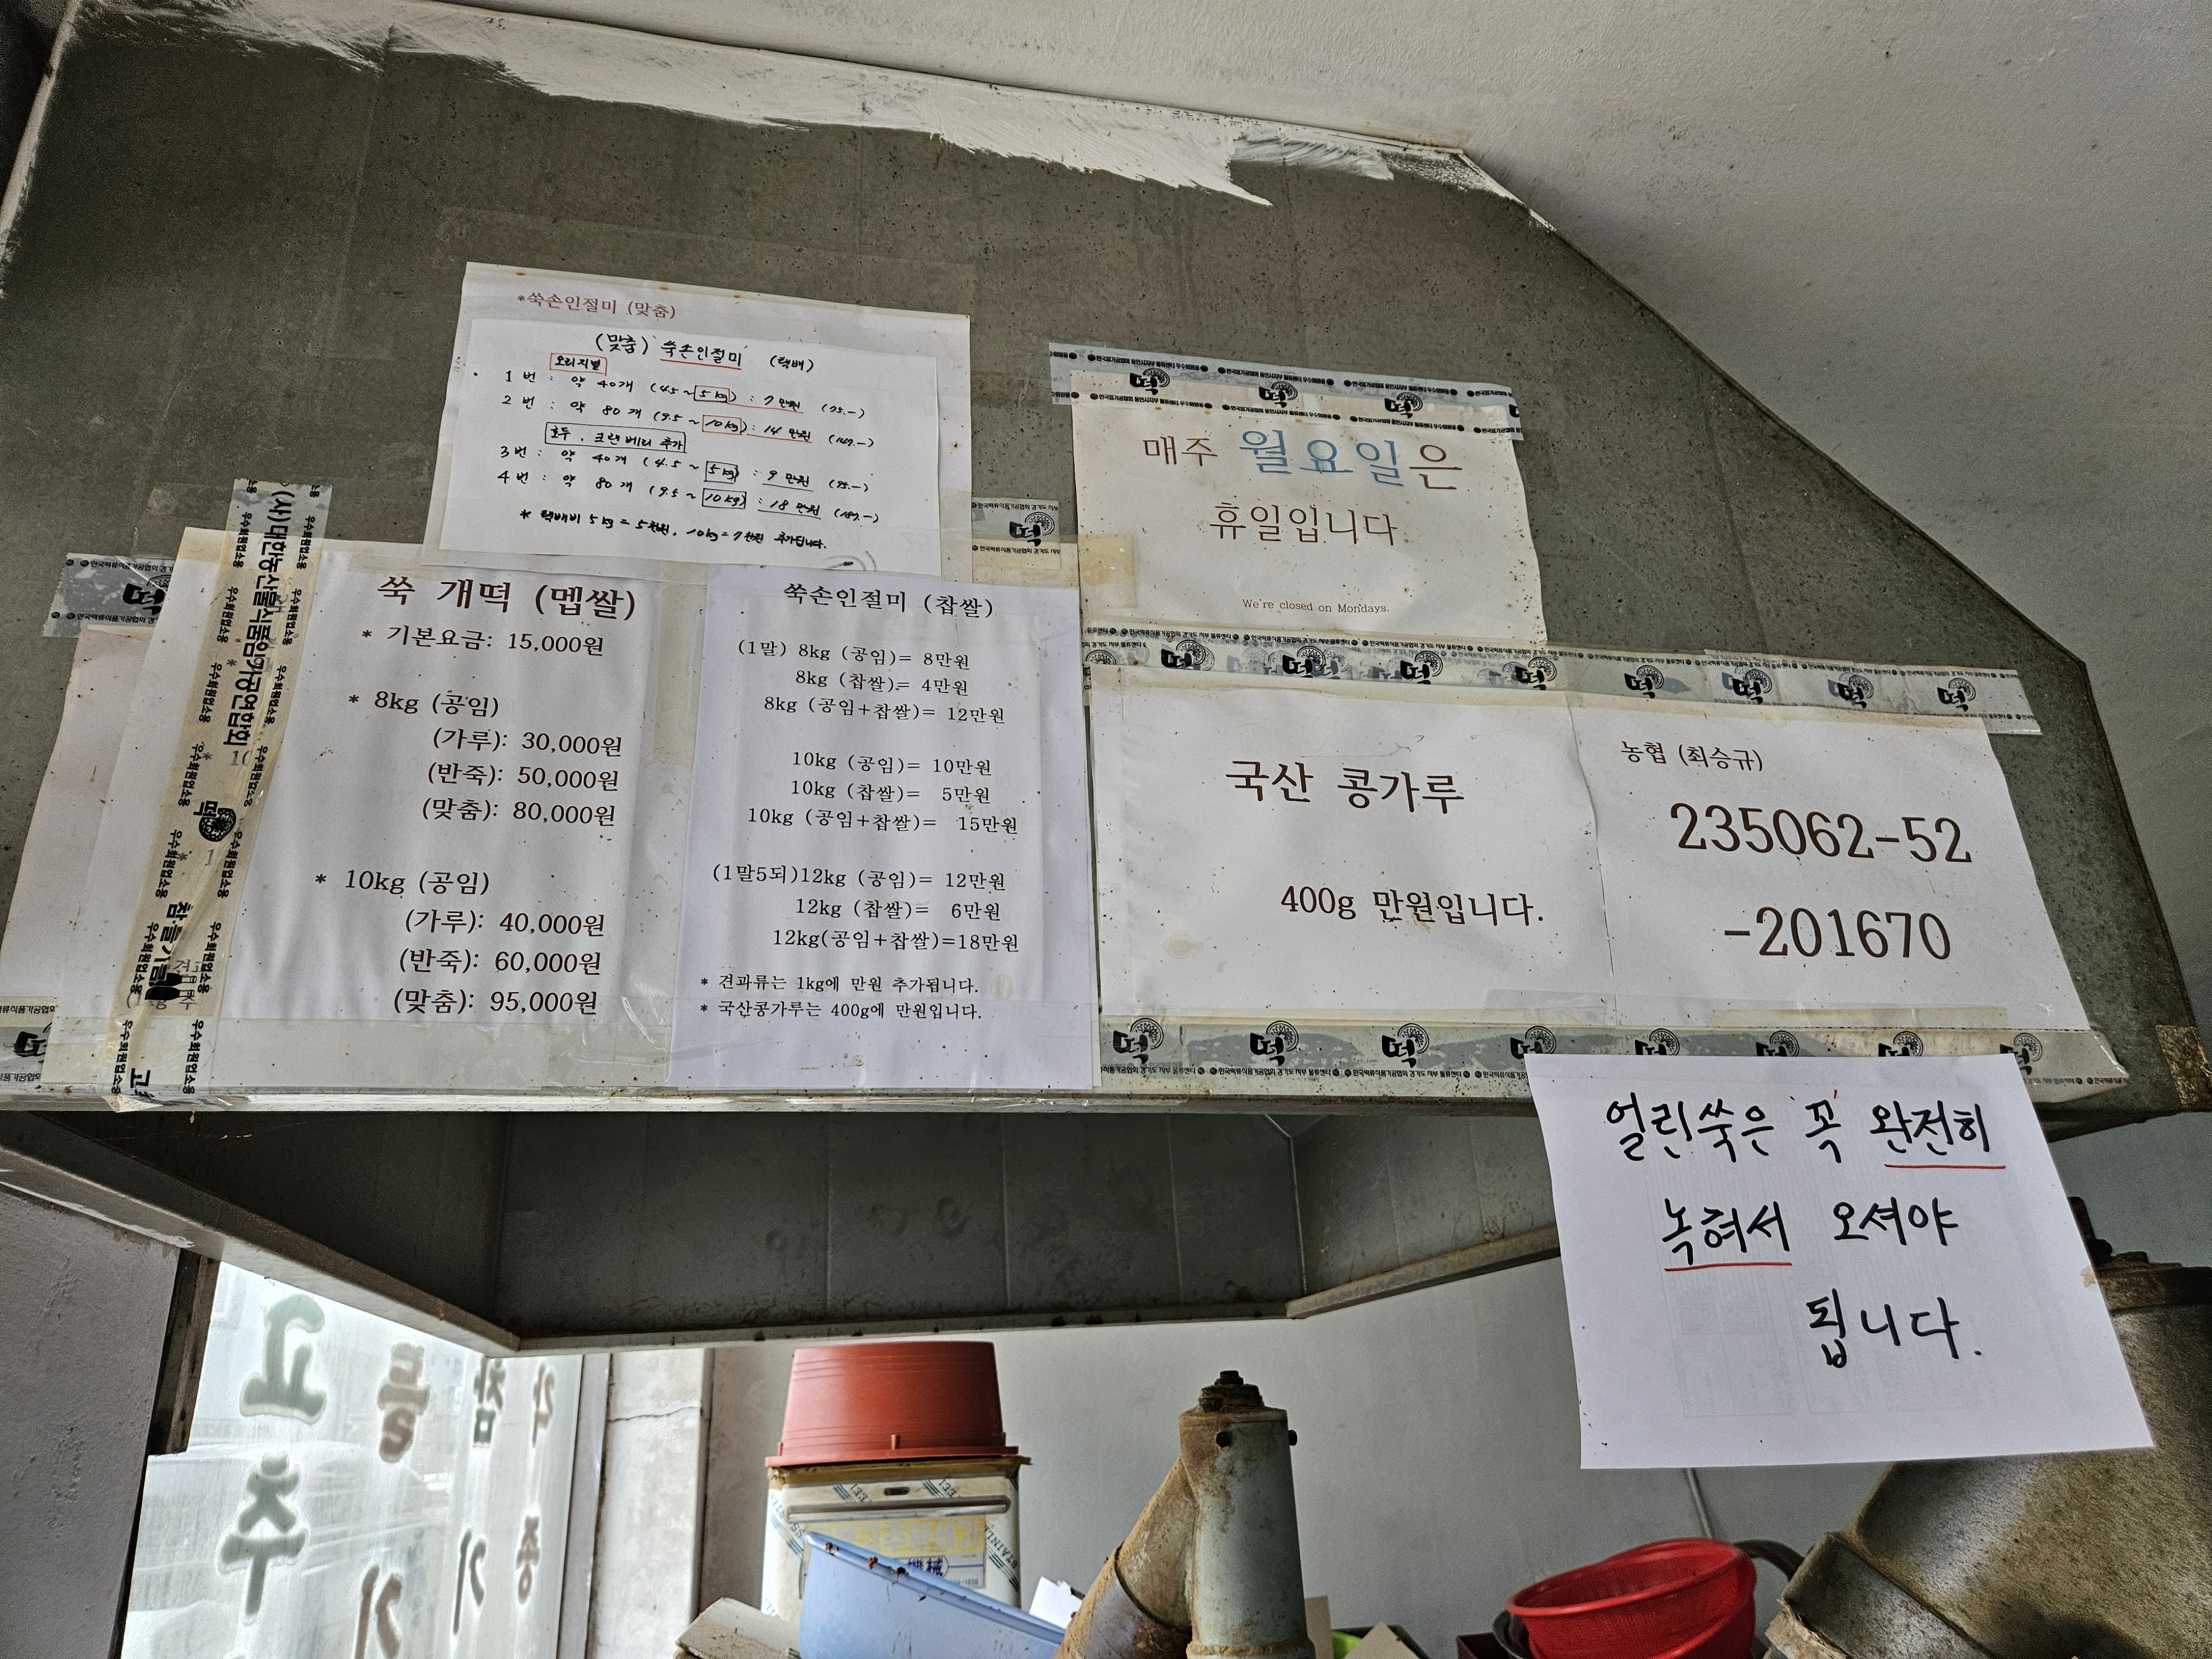 *쑥손인절미 (맞춤)
(맞춤) 쑥손인절미 (택배)
오리지널
1번 : 약 40개 (4.5~5kg) : 7만원 (75.-)
2번 : 약 80개 (9.5~10kg) : 14만원 (147.-)
호두, 크랜베리 추가
3번 : 약 40개 (4.5~5kg) : 9만원 (95.-)
4번 : 약 80개 (9.5~10kg) : 18만원 (187.-)
* 택배비 5kg = 5천원, 10kg = 7천원 추가됩니다.
매주 월요일은
휴일입니다
We're closed on Mondays.
(사)대한농산물식품임가공연합회
우수회원업소용
떡
참·들기름
쑥 개떡 (멥쌀)
* 기본요금: 15,000원
* 8kg (공임)
(가루): 30,000원
(반죽): 50,000원
(맞춤): 80,000원
* 10kg (공임)
(가루): 40,000원
(반죽): 60,000원
(맞춤): 95,000원
쑥손인절미 (찹쌀)
(1말) 8kg (공임)= 8만원
8kg (찹쌀)= 4만원
8kg (공임+찹쌀)= 12만원
10kg (공임)= 10만원
10kg (찹쌀)= 5만원
10kg (공임+찹쌀)= 15만원
(1말5되)12kg (공임)= 12만원
12kg (찹쌀)= 6만원
12kg(공임+찹쌀)=18만원
* 견과류는 1kg에 만원 추가됩니다.
* 국산콩가루는 400g에 만원입니다.
국산 콩가루
400g 만원입니다.
농협 (최승규)
235062-52
-201670
얼린쑥은 꼭 완전히
녹혀서 오셔야
됩니다.
고추
들기
참기
각종